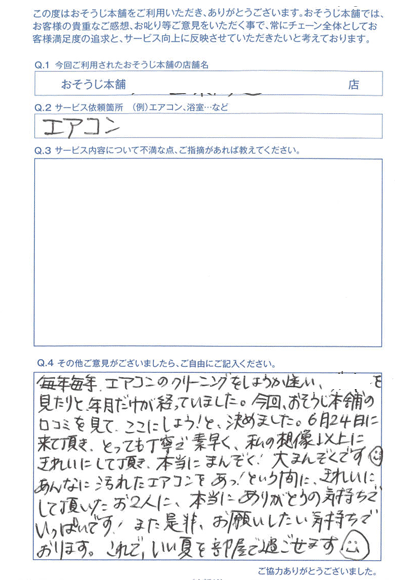 この度はおそうじ本舗をご利用いただき、ありがとうございます。おそうじ本舗では、
お客様の貴重なご感想、お叱り等ご意見をいただく事で、常にチェーン全体としてお
客様満足度の追求と、サービス向上に反映させていただきたいと考えております。
Q.1 今回ご利用されたおそうじ本舗の店舗名
おそうじ本舗 店
Q.2 サービス依頼箇所 （例）エアコン、浴室…など
エアコン
Q.3 サービス内容について不満な点、ご指摘があれば教えてください。
Q.4 その他ご意見がございましたら、ご自由にご記入ください。
毎年毎年、エアコンのクリーニングをしようか迷い、 を
見たりと、年月だけが経っていました。今回、おそうじ本舗の
口コミを見て、ここにしよう!と、決めました。6月24日に
来て頂き、とっても丁寧で素早く、私の想像以上に
きれいにして頂き、本当にまんぞく! 大まんぞくです
あんなに汚れたエアコンを、あっ!という間に、きれいに
して頂いたお2人に、本当にありがとうの気持ちで
いっぱいです! また是非、お願いしたい気持ちで
おります。これで、いい夏を部屋で過ごせます
ご協力ありがとうございました。